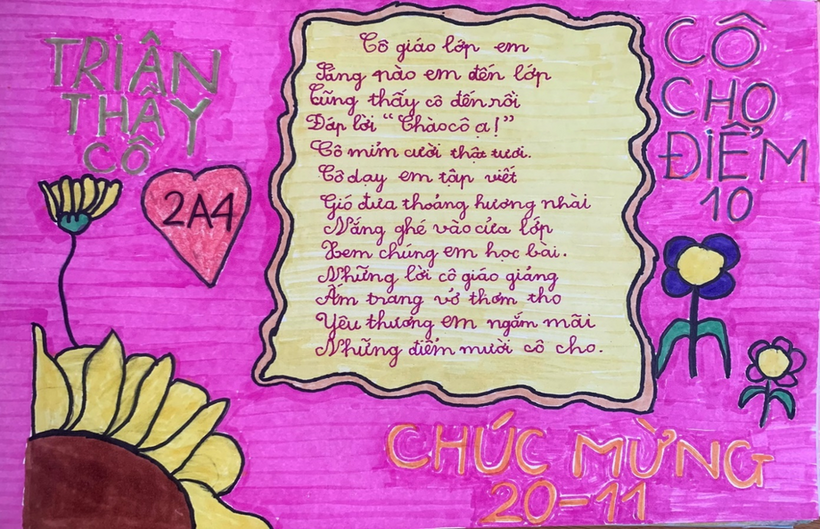 TRI ÂN
THẦY
CÔ
2A4
Cô giáo lớp em
Sáng nào em đến lớp
Cũng thấy cô đến rồi
Đáp lời "Chào cô ạ!"
Cô mỉm cười thật tươi.
Cô dạy em tập viết
Gió đưa thoảng hương nhài
Nắng ghé vào cửa lớp
Xem chúng em học bài.
Những lời cô giáo giảng
Ấm trang vở thơm tho
Yêu thương em ngắm mãi
Những điểm mười cô cho.
CÔ
CHO
ĐIỂM
10
CHÚC MỪNG
20-11